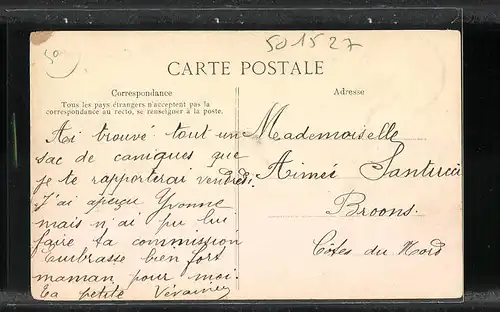 50
501527
CARTE POSTALE
Correspondance
Tous les pays étrangers n'acceptent pas la
correspondance au recto, se renseigner à la poste.
Adresse
Ai trouvé tout un
sac de caniques que
je te rapporterai vendredi.
J'ai aperçu Yvonne
mais n'ai pu lui
faire ta commission
Embrasse bien fort
maman pour moi.
Ta petite
Mademoiselle
Aimée Santucci
Broons.
Côtes du Nord